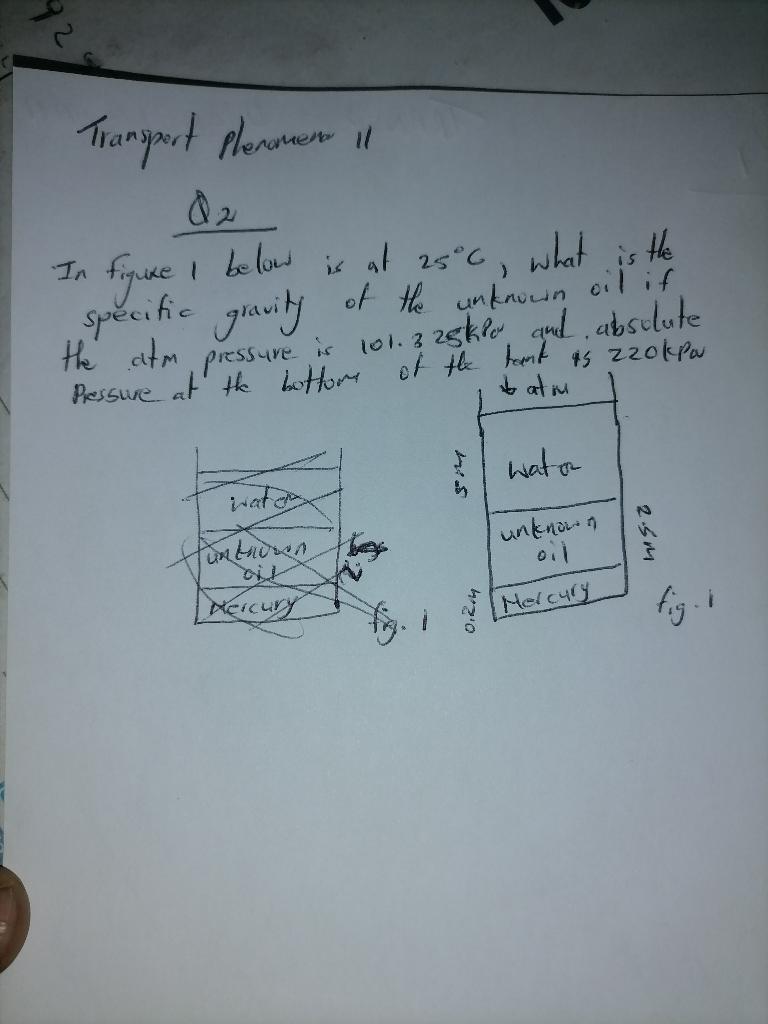 92
Transport Phenomena 11
Q2
In figure 1 below is at 25°C, what is the
specific gravity of the unknown oil if
the atm pressure is 101.325kPa and absolute
Pressure at the bottom of the tank is 220kPa
atm
water
5M
unknown
oil
2.5M
Mercury
0.2M
fig. 1
water
unknown
oil
Mercury
fig. 1